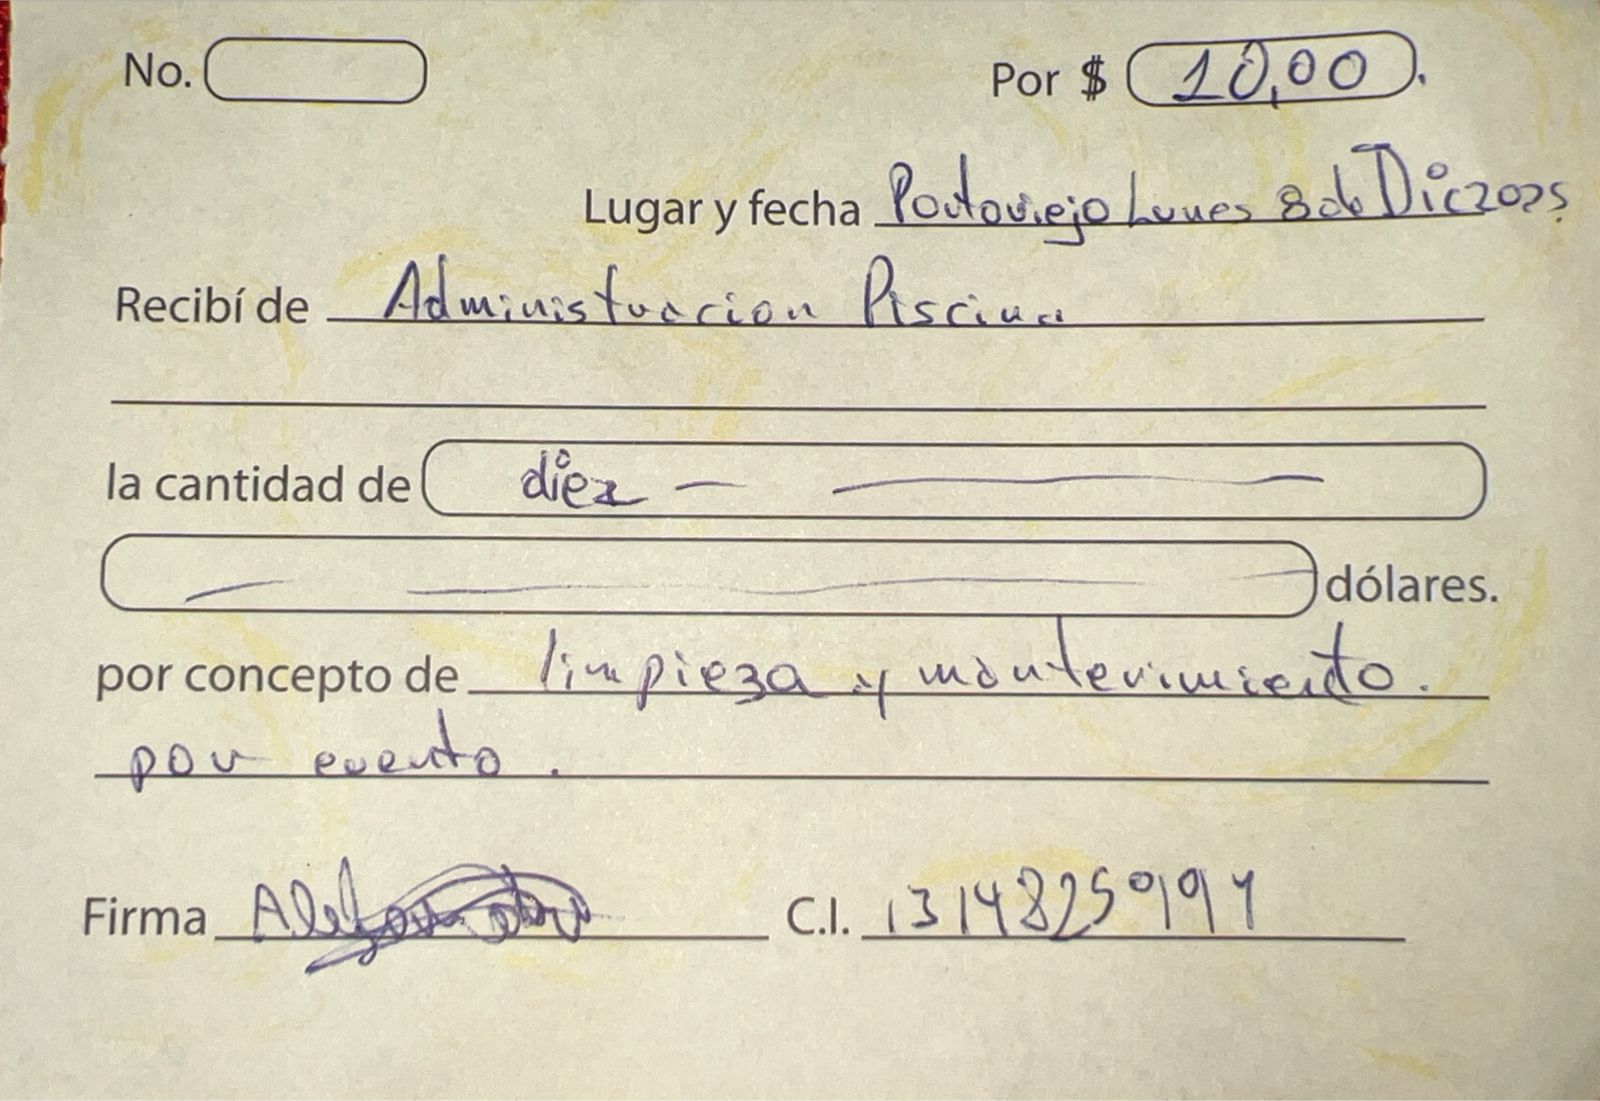 No.
Por $ 10,00.
Lugar y fecha Portoviejo Lunes 8 de Dic 2025
Recibí de Administracion Piscina
la cantidad de diez
dólares.
por concepto de limpieza y mantenimiento.
por evento.
Firma Alejandro C.I.